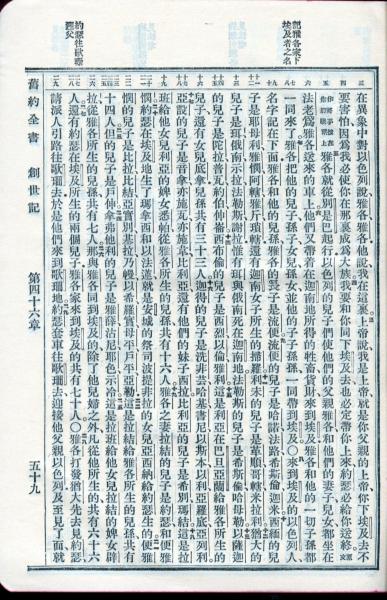 記雅各家下
埃及者之名
約瑟往歌珊
迎父
在異象中對以色列說雅各雅各他說我在這裏上帝說我是上帝就是你父親的上帝你下埃及去不
要害怕因為我必使你在那裏成為大族我要和你同下埃及去也必定帶你上來約瑟必給你送終
雅各就從別是巴起行以色列的兒子們使他們的父親雅各和他們的妻子兒女都坐在
法老為雅各送來的車上他們又帶着在迦南地所得的牲畜貨財來到埃及雅各和他的一切子孫都
一同來了雅各把他的兒子孫子女兒孫女並他的子子孫孫一同帶到埃及〇來到埃及的以色列人
名字記在下面雅各和他的兒孫雅各的長子是流便流便的兒子是哈諾法路希斯倫迦米西緬的兒
子是耶母利雅憫阿轄雅斤瑣轄還有迦南女子所生的掃羅利未的兒子是革順哥轄米拉利猶大的
兒子是珥俄南示拉法勒斯謝拉惟有珥與俄南死在迦南地法勒斯的兒子是希斯倫哈母勒以薩迦
的兒子是陀拉普瓦約伯伸崙西布倫的兒子是西烈以倫雅利這是利亞在巴旦亞蘭給雅各所生的
兒子還有女兒底拿兒孫共有三十三人迦得的兒子是洗非芸哈基書尼以斯本以利亞羅底亞列利
亞設的兒子是音拿亦施瓦亦施韋比利亞還有他們的妹子西拉比利亞的兒子是希別瑪結這是拉
班給他女兒利亞的婢女悉帕從雅各所生的兒孫共有十六人雅各之妻拉結的兒子是約瑟和便雅
憫約瑟在埃及地生了瑪拿西和以法蓮就是安城的祭司波提非拉的女兒亞西納給約瑟生的便雅
憫的兒子是比拉比結亞實別基拉乃幔以希羅實母平戶平亞勒這是拉結給雅各所生的兒孫共有
十四人但的兒子是戶伸拿弗他利的兒子是雅薛沽尼耶色示冷這是拉班給他女兒拉結的婢女辟
拉從雅各所生的兒孫共有七人那與雅各同到埃及的除了他兒婦之外凡從他所生的共有六十六
人還有約瑟在埃及所生的兩個兒子雅各家來到埃及的共有七十人〇雅各打發猶大先去見約瑟
請派人引路往歌珊去於是他們來到歌珊地約瑟套車往歌珊去迎接他父親以色列及至見了面就
舊約全書 創世記 第四十六章 五十九